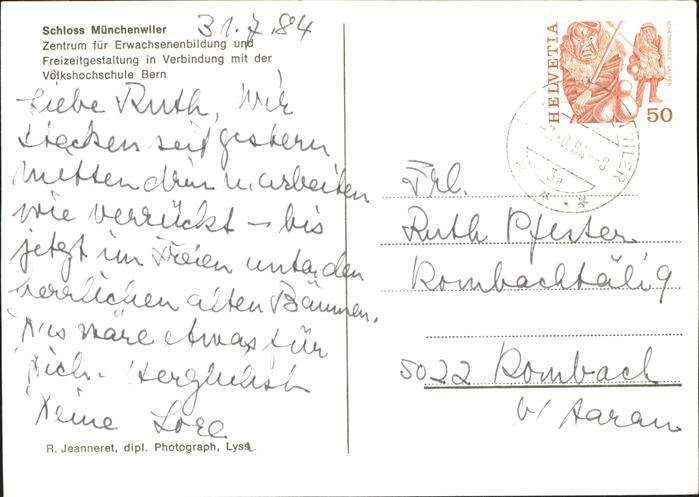 Schloss Münchenwiler
31.7.84
Zentrum für Erwachsenenbildung und
Freizeitgestaltung in Verbindung mit der
Volkshochschule Bern
Liebe Ruth, Wir
stecken seit gestern
mitten drin u. arbeiten
wie verrückt – bis
jetzt im Freien unter den
herrlichen alten Bäumen.
Das wäre etwas für
Dich. Herzlichst
Deine Lore
R. Jeanneret, dipl. Photograph, Lyss
HELVETIA
50
Frl.
Ruth Pfister
Rombachtäli 9
5022 Rombach
b/ Aarau